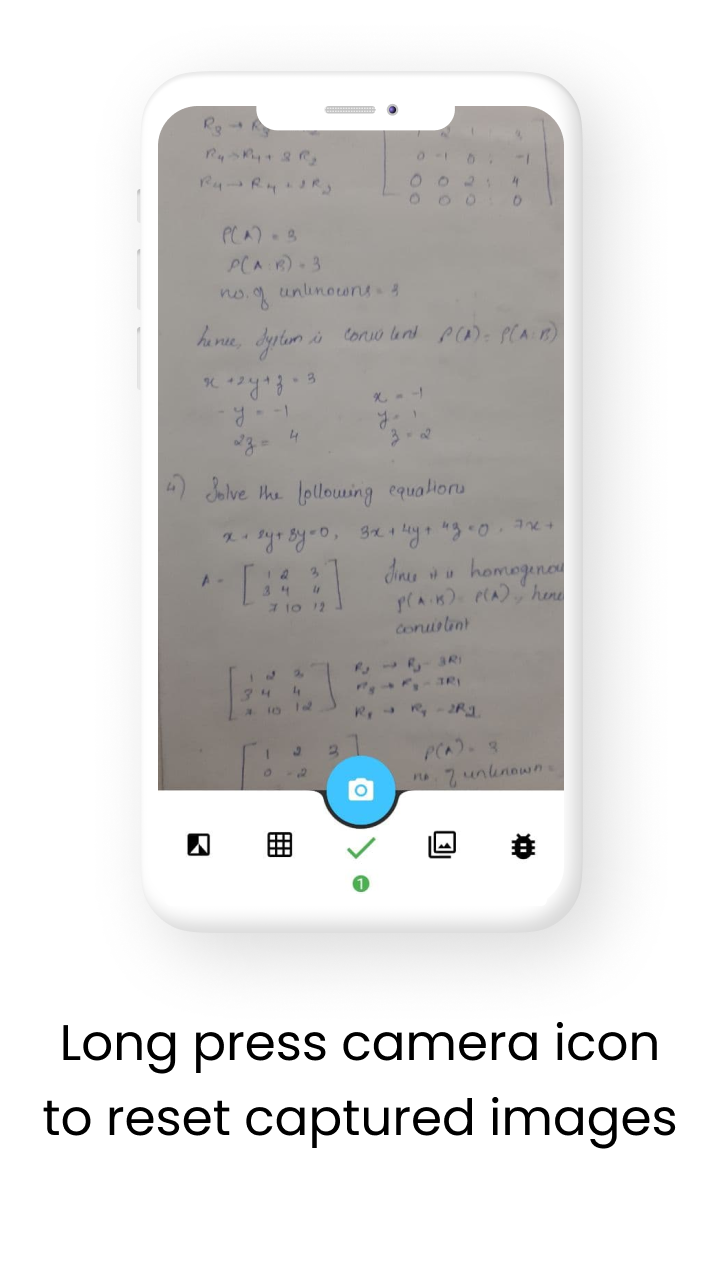 R3 → R3
R4 → R4 + 3 R2
R4 → R4 + 2 R3
1 2 1 : 3
0 -1 0 : -1
0 0 2 : 4
0 0 0 : 0
ρ(A) = 3
ρ(A:B) = 3
no. of unknowns = 3
hence, system is consistent ρ(A) = ρ(A:B)
x + 2y + z = 3
- y = -1
2z = 4
x = -1
y = 1
z = 2
4) Solve the following equations
x + 2y + 3y = 0, 3x + 4y + 4z = 0. 7x +
A = [ 1 2 3
3 4 4
7 10 12 ]
Since it is homogenou
ρ(A:B) = ρ(A), hence
consistent
[ 1 2 3
3 4 4
7 10 12 ]
R2 → R2 - 3R1
R3 → R3 - 7R1
R3 → R3 - 2R2
[ 1 2 3
0 -2
ρ(A) = 3
no. of unknown =
1
Long press camera icon
to reset captured images